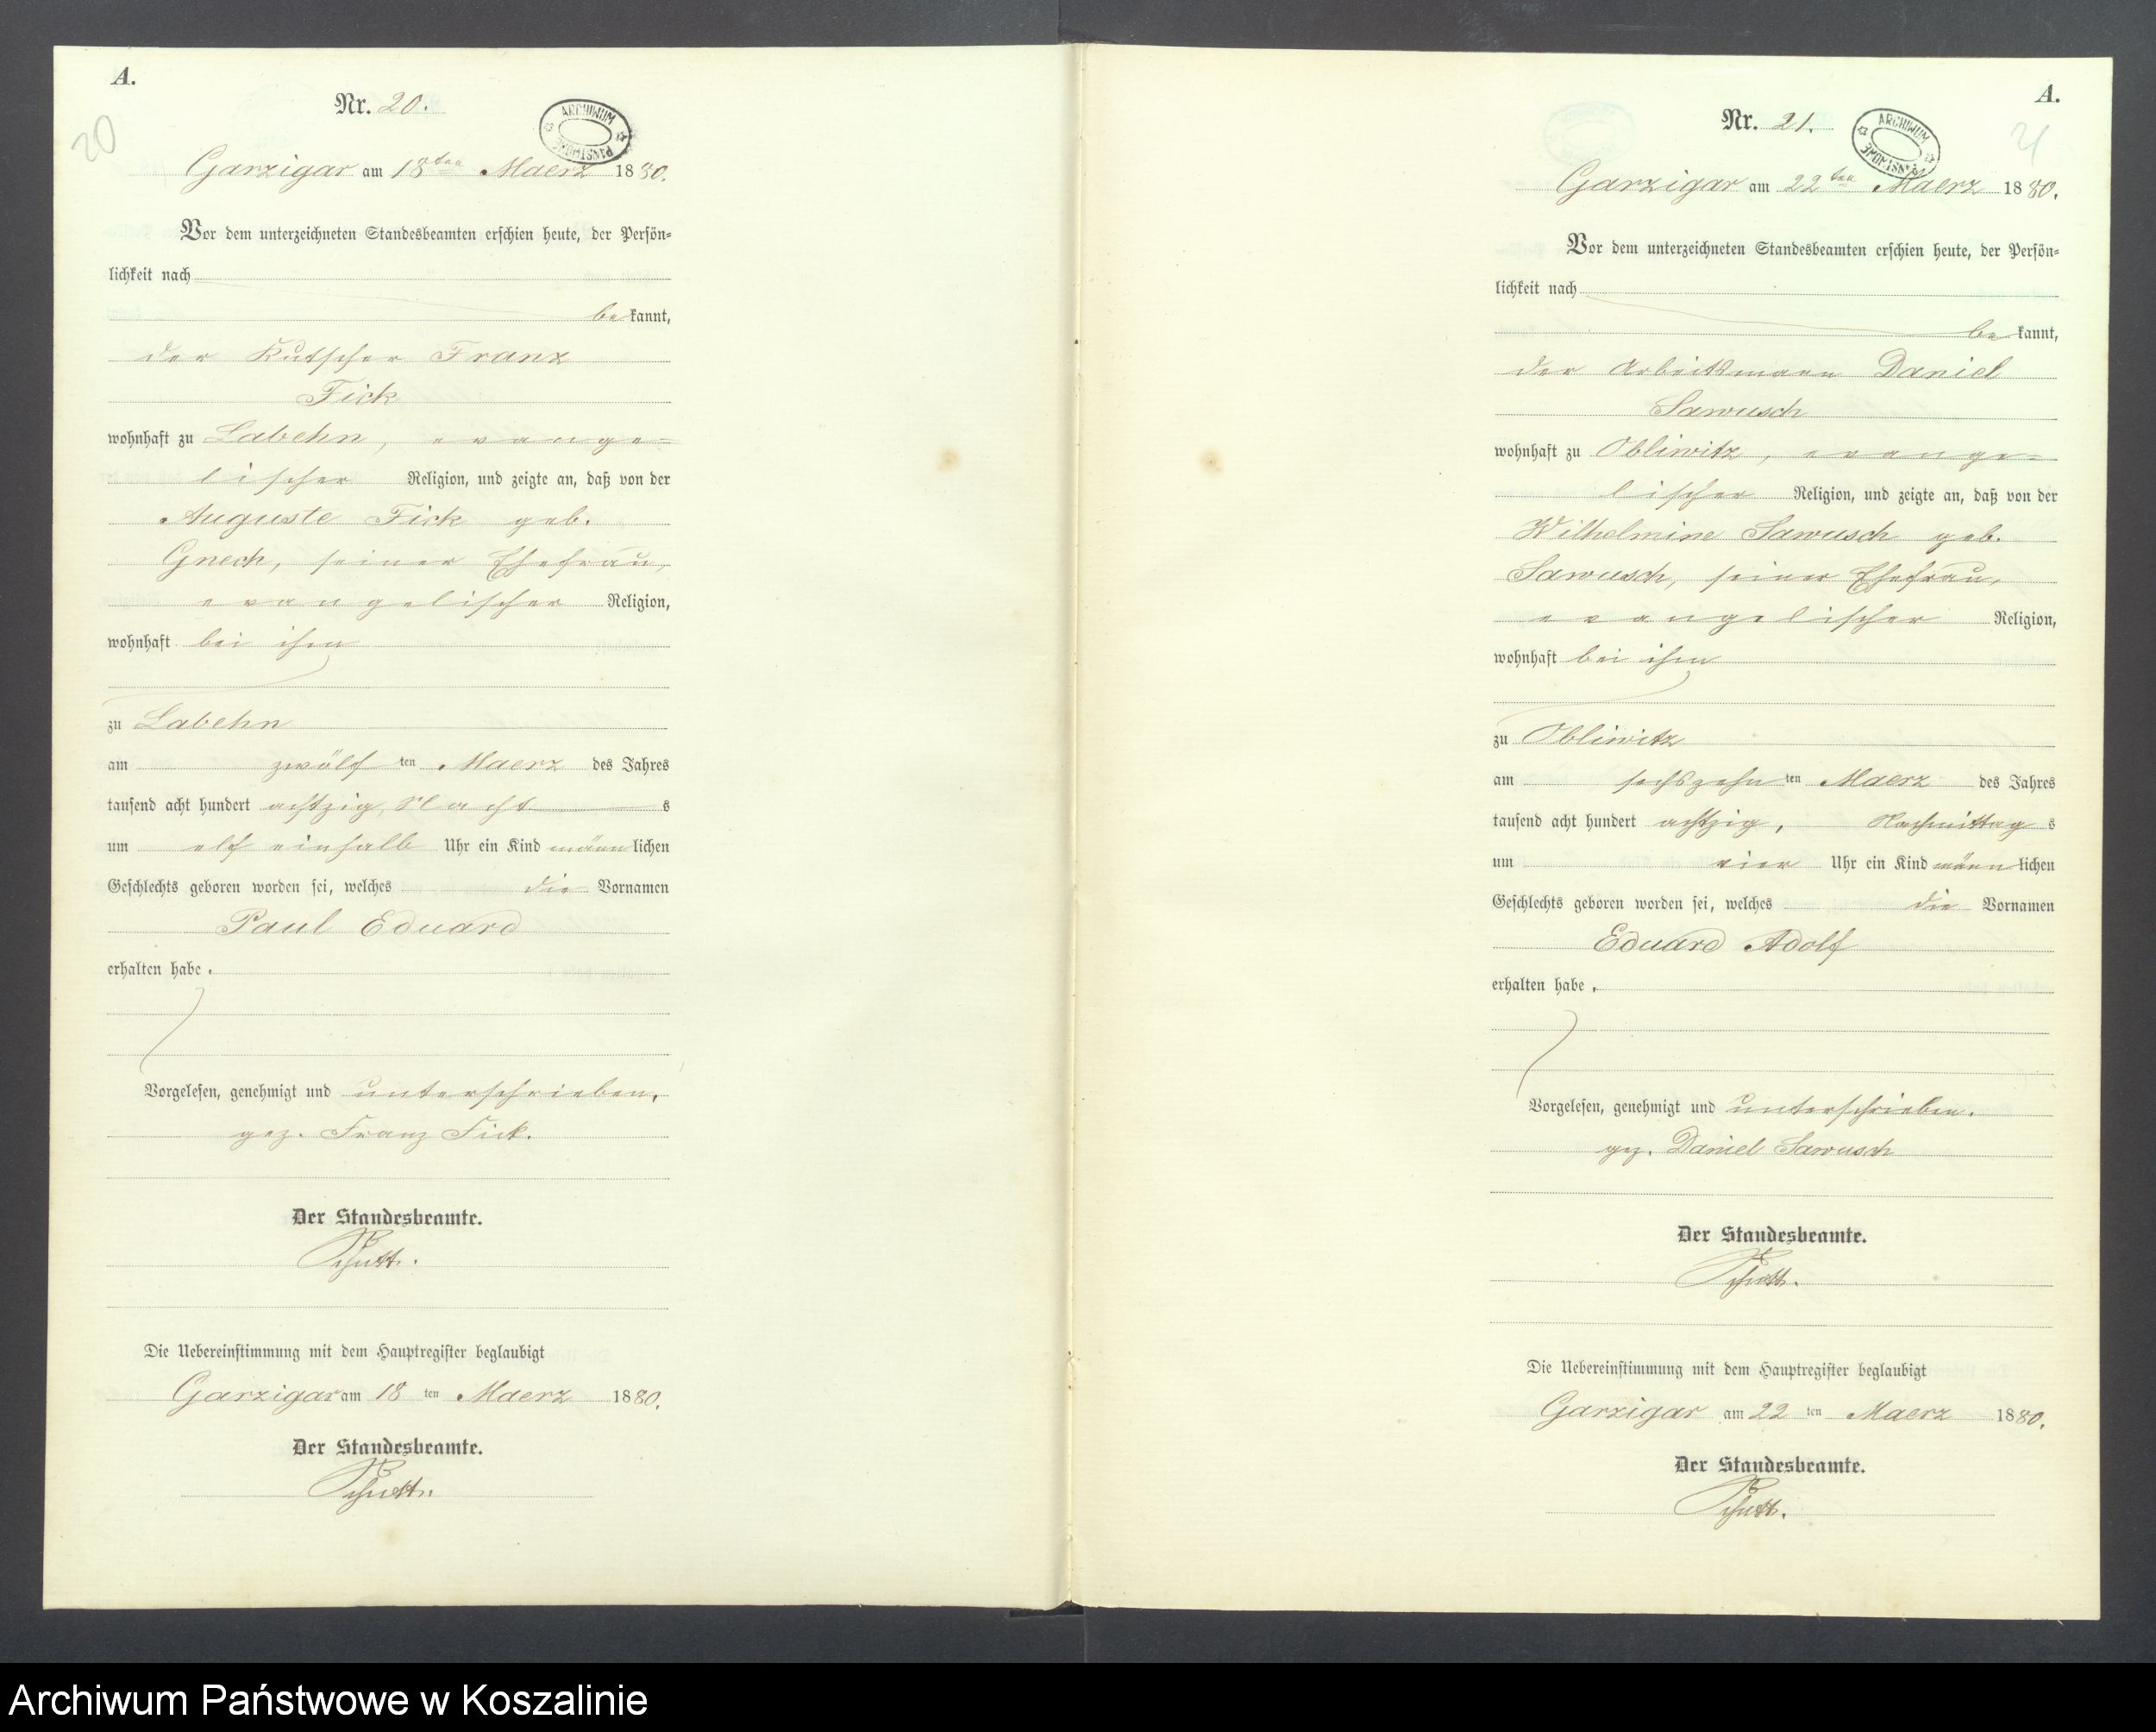 A.
20
Nr. 20.
ARCHIWUM PAŃSTWOWE
Garzigar am 18ten Maerz 1880.
Vor dem unterzeichneten Standesbeamten erschien heute, der Persön=
lichkeit nach
bekannt,
der Kutscher Franz
Fick
wohnhaft zu Labehn, evange=
lischer Religion, und zeigte an, daß von der
Auguste Fick geb.
Gnech, seiner Ehefrau,
evangelischer Religion,
wohnhaft bei ihm
zu Labehn
am zwölf ten Maerz des Jahres
tausend acht hundert achtzig, Nacht s
um elf einhalb Uhr ein Kind männlichen
Geschlechts geboren worden sei, welches die Vornamen
Paul Eduard
erhalten habe.
Vorgelesen, genehmigt und unterschrieben.
gez. Franz Fick.
Der Standesbeamte.
Die Uebereinstimmung mit dem Hauptregister beglaubigt
Garzigar am 18 ten Maerz 1880.
Der Standesbeamte.
A.
21
Nr. 21.
ARCHIWUM PAŃSTWOWE
Garzigar am 22ten Maerz 1880.
Vor dem unterzeichneten Standesbeamten erschien heute, der Persön=
lichkeit nach
bekannt,
der Arbeitsmann Daniel
Sawusch
wohnhaft zu Obliwitz, evange=
lischer Religion, und zeigte an, daß von der
Wilhelmine Sawusch geb.
Sawusch, seiner Ehefrau,
evangelischer Religion,
wohnhaft bei ihm
zu Obliwitz
am sechszehn ten Maerz des Jahres
tausend acht hundert achtzig, Nachmittags
um vier Uhr ein Kind männlichen
Geschlechts geboren worden sei, welches die Vornamen
Eduard Adolf
erhalten habe.
Vorgelesen, genehmigt und unterschrieben.
gez. Daniel Sawusch
Der Standesbeamte.
Die Uebereinstimmung mit dem Hauptregister beglaubigt
Garzigar am 22 ten Maerz 1880.
Der Standesbeamte.
Archiwum Państwowe w Koszalinie